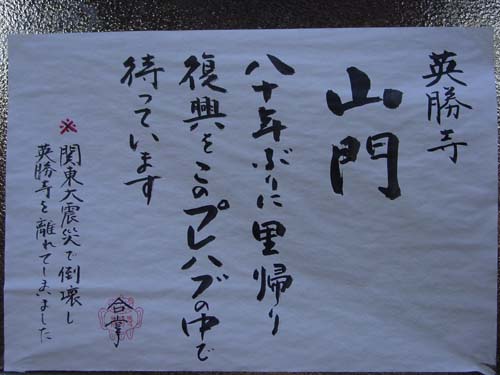 英勝寺
山門
八十年ぶりに里帰り
復興をこのプレハブの中で
待っています
※関東大震災で倒壊し
英勝寺を離れてしまいました
合掌